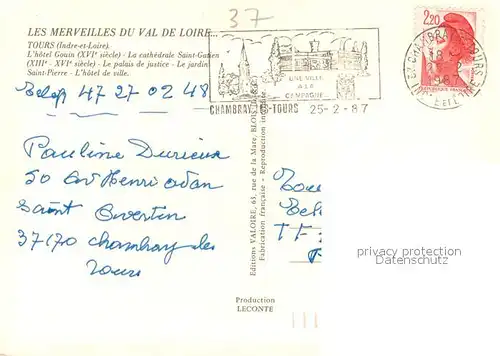 37
LES MERVEILLES DU VAL DE LOIRE...
TOURS (Indre-et-Loire)
L'hôtel Gouin (XVIe siècle) - La cathédrale Saint-Gatien
(XIIIe - XVIe siècle) - Le palais de justice - Le jardin
Saint-Pierre - L'hôtel de ville.
UNE VILLE
A LA
CAMPAGNE
CHAMBRAY LES TOURS 25-2-87
2,20
CHAMBRAY LES TOURS
1987
INDRE ET LOIRE
47 27 02 48
Pauline Durieux
50 av Henri adam
Saint Avertin
37170 Chambray les
Tours
Editions VALOIRE, 63, rue de la Mare, BLOIS
Fabrication française - Reproduction interdite
Production
LECONTE
privacy protection
Datenschutz